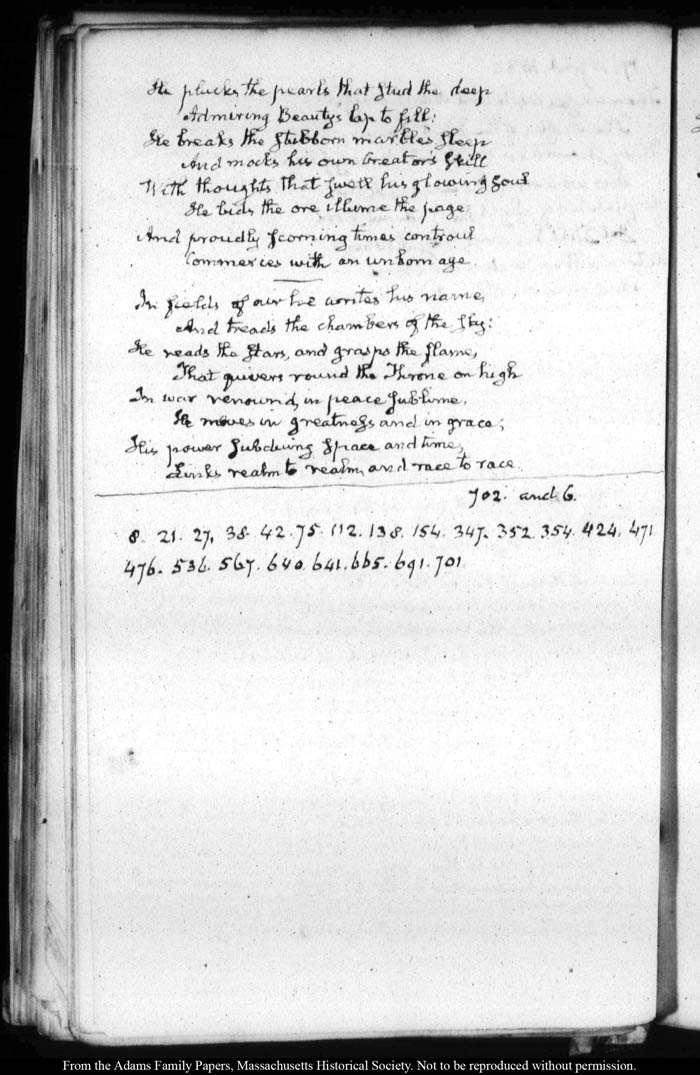 He plucks the pearls that stud the deep
Admiring Beauty's lap to fill:
He breaks the stubborn marble's sleep
And mocks his own Creator's skill
With thoughts that swell his glowing soul
He bids the ore illume the page
And proudly scorning times controul
Commerces with an unborn age.
In fields of air he writes his name,
And treads the chambers of the sky:
He reads the stars, and grasps the flame,
That quivers round the Throne on high
In war renound, in peace sublime,
He moves in greatness and in grace;
His power subduing space and time,
Links realm to realm, and race to race.
702. and 6.
8. 21. 27. 38. 42. 75. 112. 138. 154. 347. 352. 354. 424. 471
476. 536. 567. 640. 641. 665. 691. 701
From the Adams Family Papers, Massachusetts Historical Society. Not to be reproduced without permission.